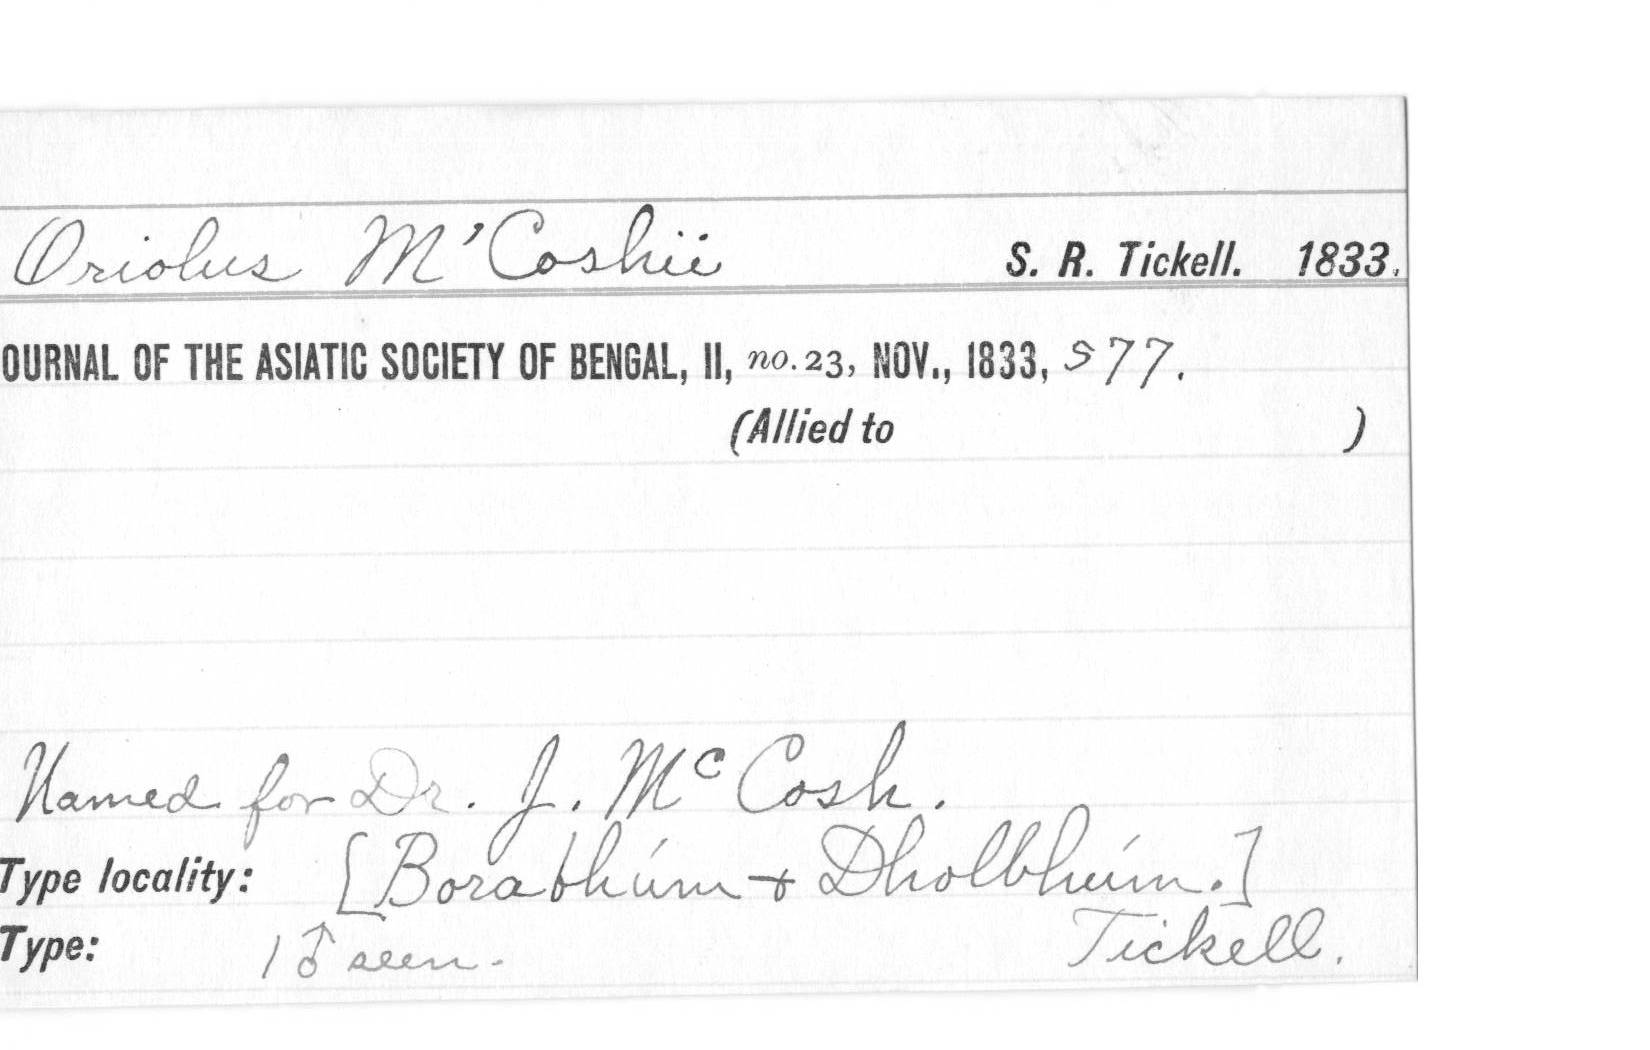 Oriolus M'Coshii S. R. Tickell. 1833.
OURNAL OF THE ASIATIC SOCIETY OF BENGAL, II, no. 23, NOV., 1833, 577.
(Allied to )
Named for Dr. J. Mc Cosh.
Type locality: [Borabhúm + Dholbhúm.]
Type: 1 ♂ seen. Tickell.